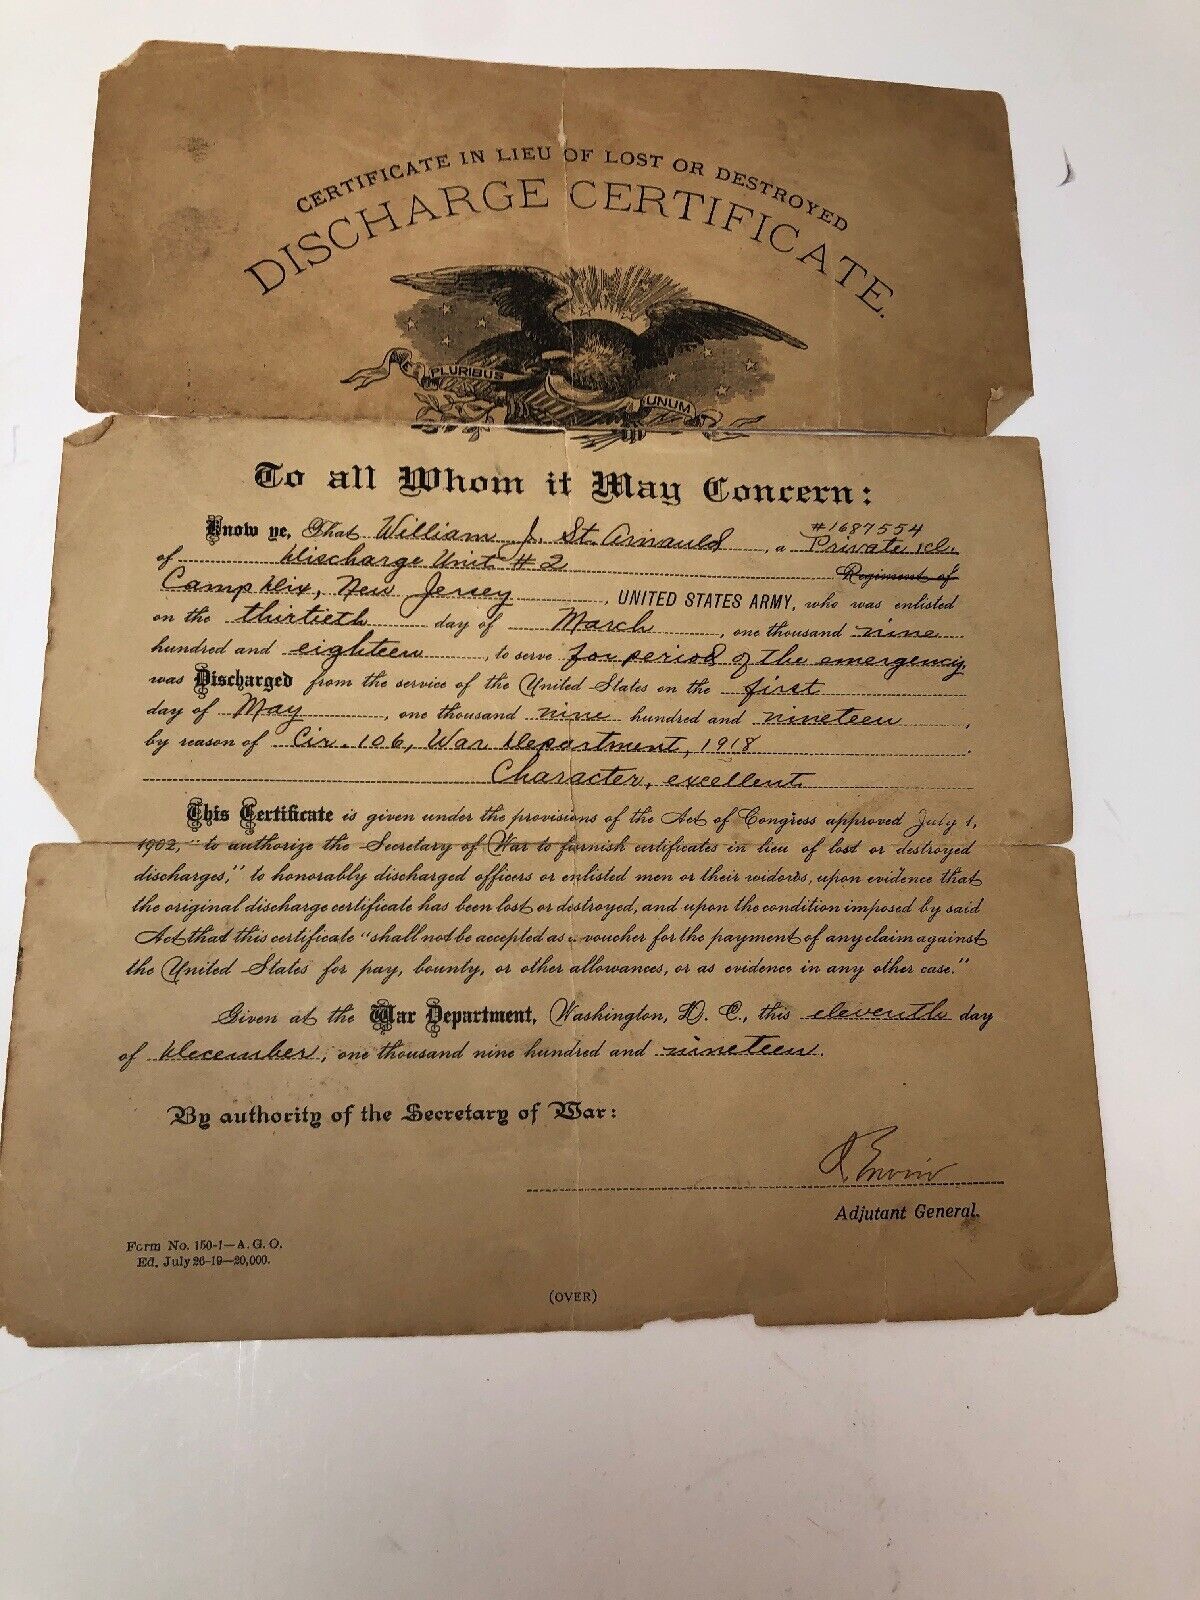 CERTIFICATE IN LIEU OF LOST OR DESTROYED
DISCHARGE CERTIFICATE.
PLURIBUS
UNUM
To all Whom it May Concern:
#1687554
Know ye, That William J. St. Arnauld, a Private 1cl.
of Discharge Unit #2 Regiment of
Camp Dix, New Jersey, UNITED STATES ARMY, who was enlisted
on the thirtieth day of March, one thousand nine
hundred and eighteen, to serve for period of the emergency
was Discharged from the service of the United States on the first
day of May, one thousand nine hundred and nineteen,
by reason of Cir. 106, War Department, 1918.
Character, excellent
This Certificate is given under the provisions of the Act of Congress approved July 1,
1902, "to authorize the Secretary of War to furnish certificates in lieu of lost or destroyed
discharges," to honorably discharged officers or enlisted men or their widows, upon evidence that
the original discharge certificate has been lost or destroyed, and upon the condition imposed by said
Act that this certificate "shall not be accepted as a voucher for the payment of any claim against
the United States for pay, bounty, or other allowances, or as evidence in any other case."
Given at the War Department, Washington, D. C., this eleventh day
of December, one thousand nine hundred and nineteen.
By authority of the Secretary of War:
Adjutant General.
Form No. 150-1—A. G. O.
Ed. July 26-19—20,000.
(OVER)